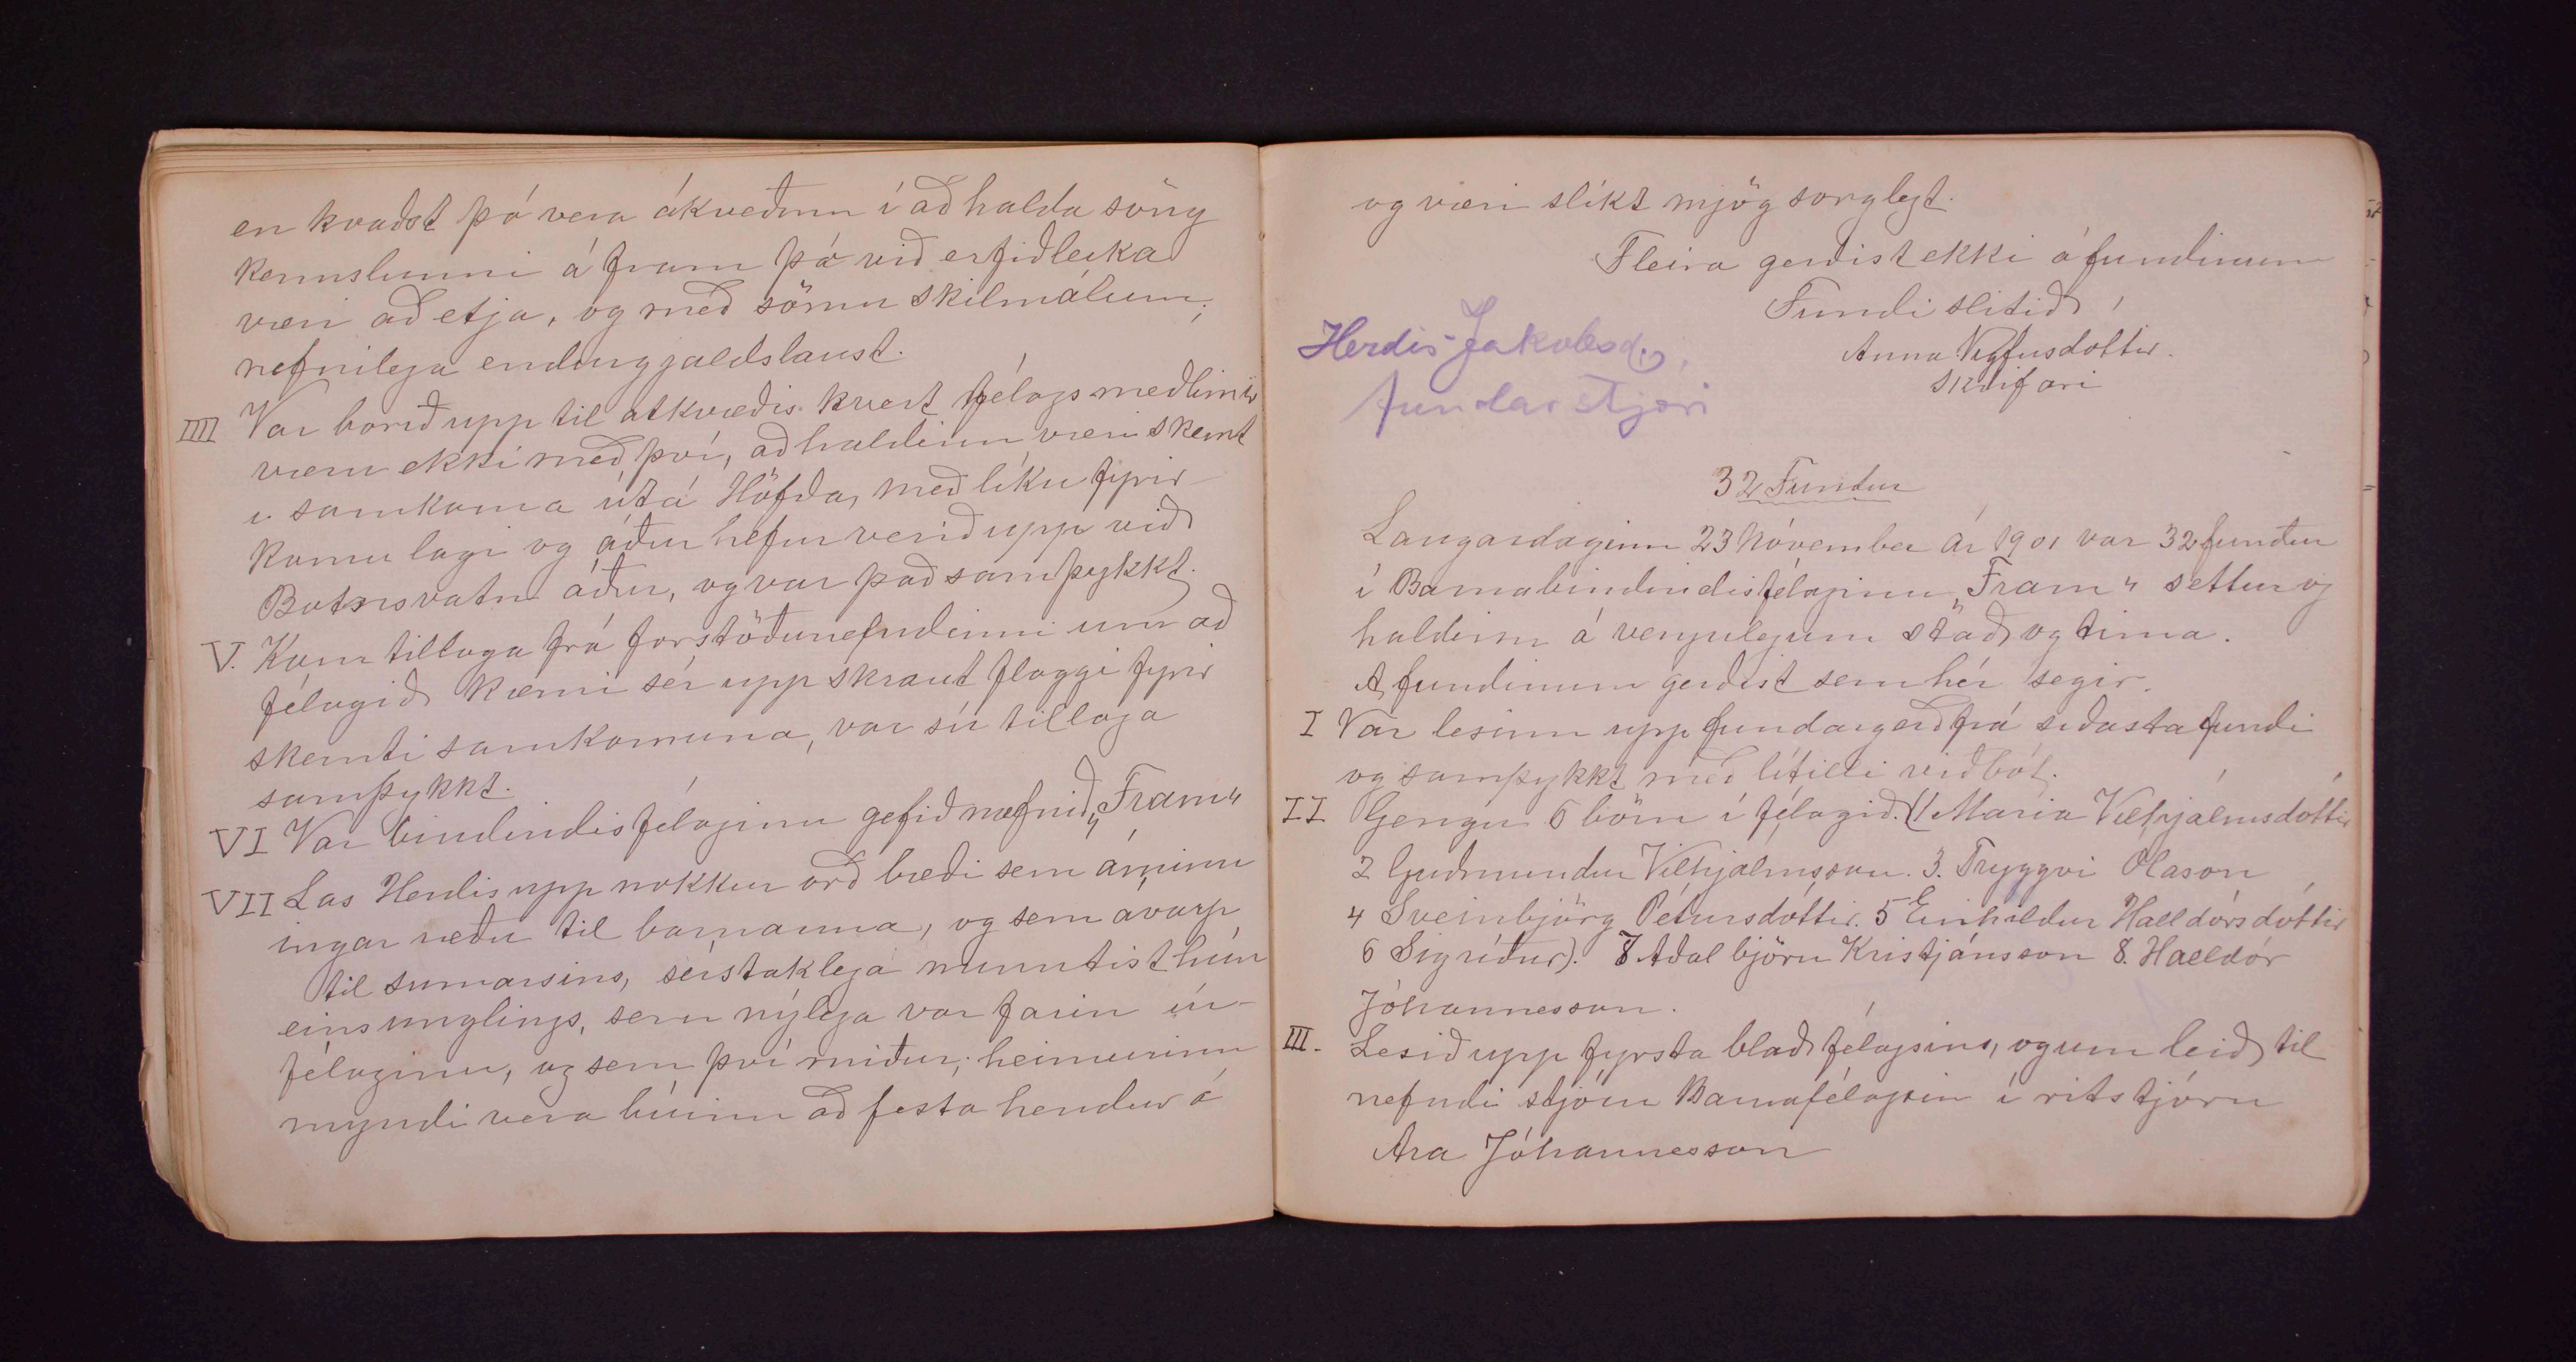 en kvaðst þó vera ákveðinn í að halda söng
kennslunni áfram þó við erfiðleika
væri að etja, og með sömu skilmálum;
nefnilega endurgjaldslaust.
IIII Var borið upp til atkvæðis hvert félagsmeðlimir
væru ekki með því, að haldinn væri skemt
i samkoma útá Höfða, með líku fyrir
komulagi og áður hefur verið upp við
Botnsvatn áður, og var það samþykkt.
V. Kom tillaga frá forstöðunefndinni um að
félagið kæmi sér upp skraut flaggi fyrir
skemti samkomuna, var sú tillaga
samþykkt.
VI Var bindindisfélaginu gefið nafnið „Fram"
VII Las Herdís upp nokkur orð bæði sem áminn
ingar ræðu til barnanna, og sem ávarp
til sumarsins, sérstaklega minntist hún
eins unglings, sem nýlega var farin úr
félaginu, og sem því miður; heimurinn
myndi vera búinn að festa hendur á
og væri slíkt mjög sorglegt.
Fleira gerðist ekki á fundinum
Fundi slitið
Herdís Jakobsd.
Anna Vigfusdottir.
fundarstjóri
skrifari
32 Fundur
Laugardaginn 23 Nóvember ár 1901 var 32 fundur
í Barnabindindisfélaginu „Fram" settur og
haldinn á venjulegum stað og tima.
A fundinum gerðist sem hér segir.
I Var lesinn upp fundargerð frá siðasta fundi
og samþykkt með lítilli viðbót.
II Gengu 6 börn í félagið. (1 María Vilhjálmsdóttir
2 Guðmundur Vilhjálmsson. 3. Tryggvi Ólason
4 Sveinbjörg Pétursdóttir. 5 Einhildur Halldórsdóttir
6 Sigríður). 7 Aðalbjörn Kristjánsson 8. Halldór
Jóhannesson.
III. Lesið upp fyrsta blað félagsins, og um leið til
nefndi stjórn Barnafélagsin í ritstjórn
Ara Jóhannesson